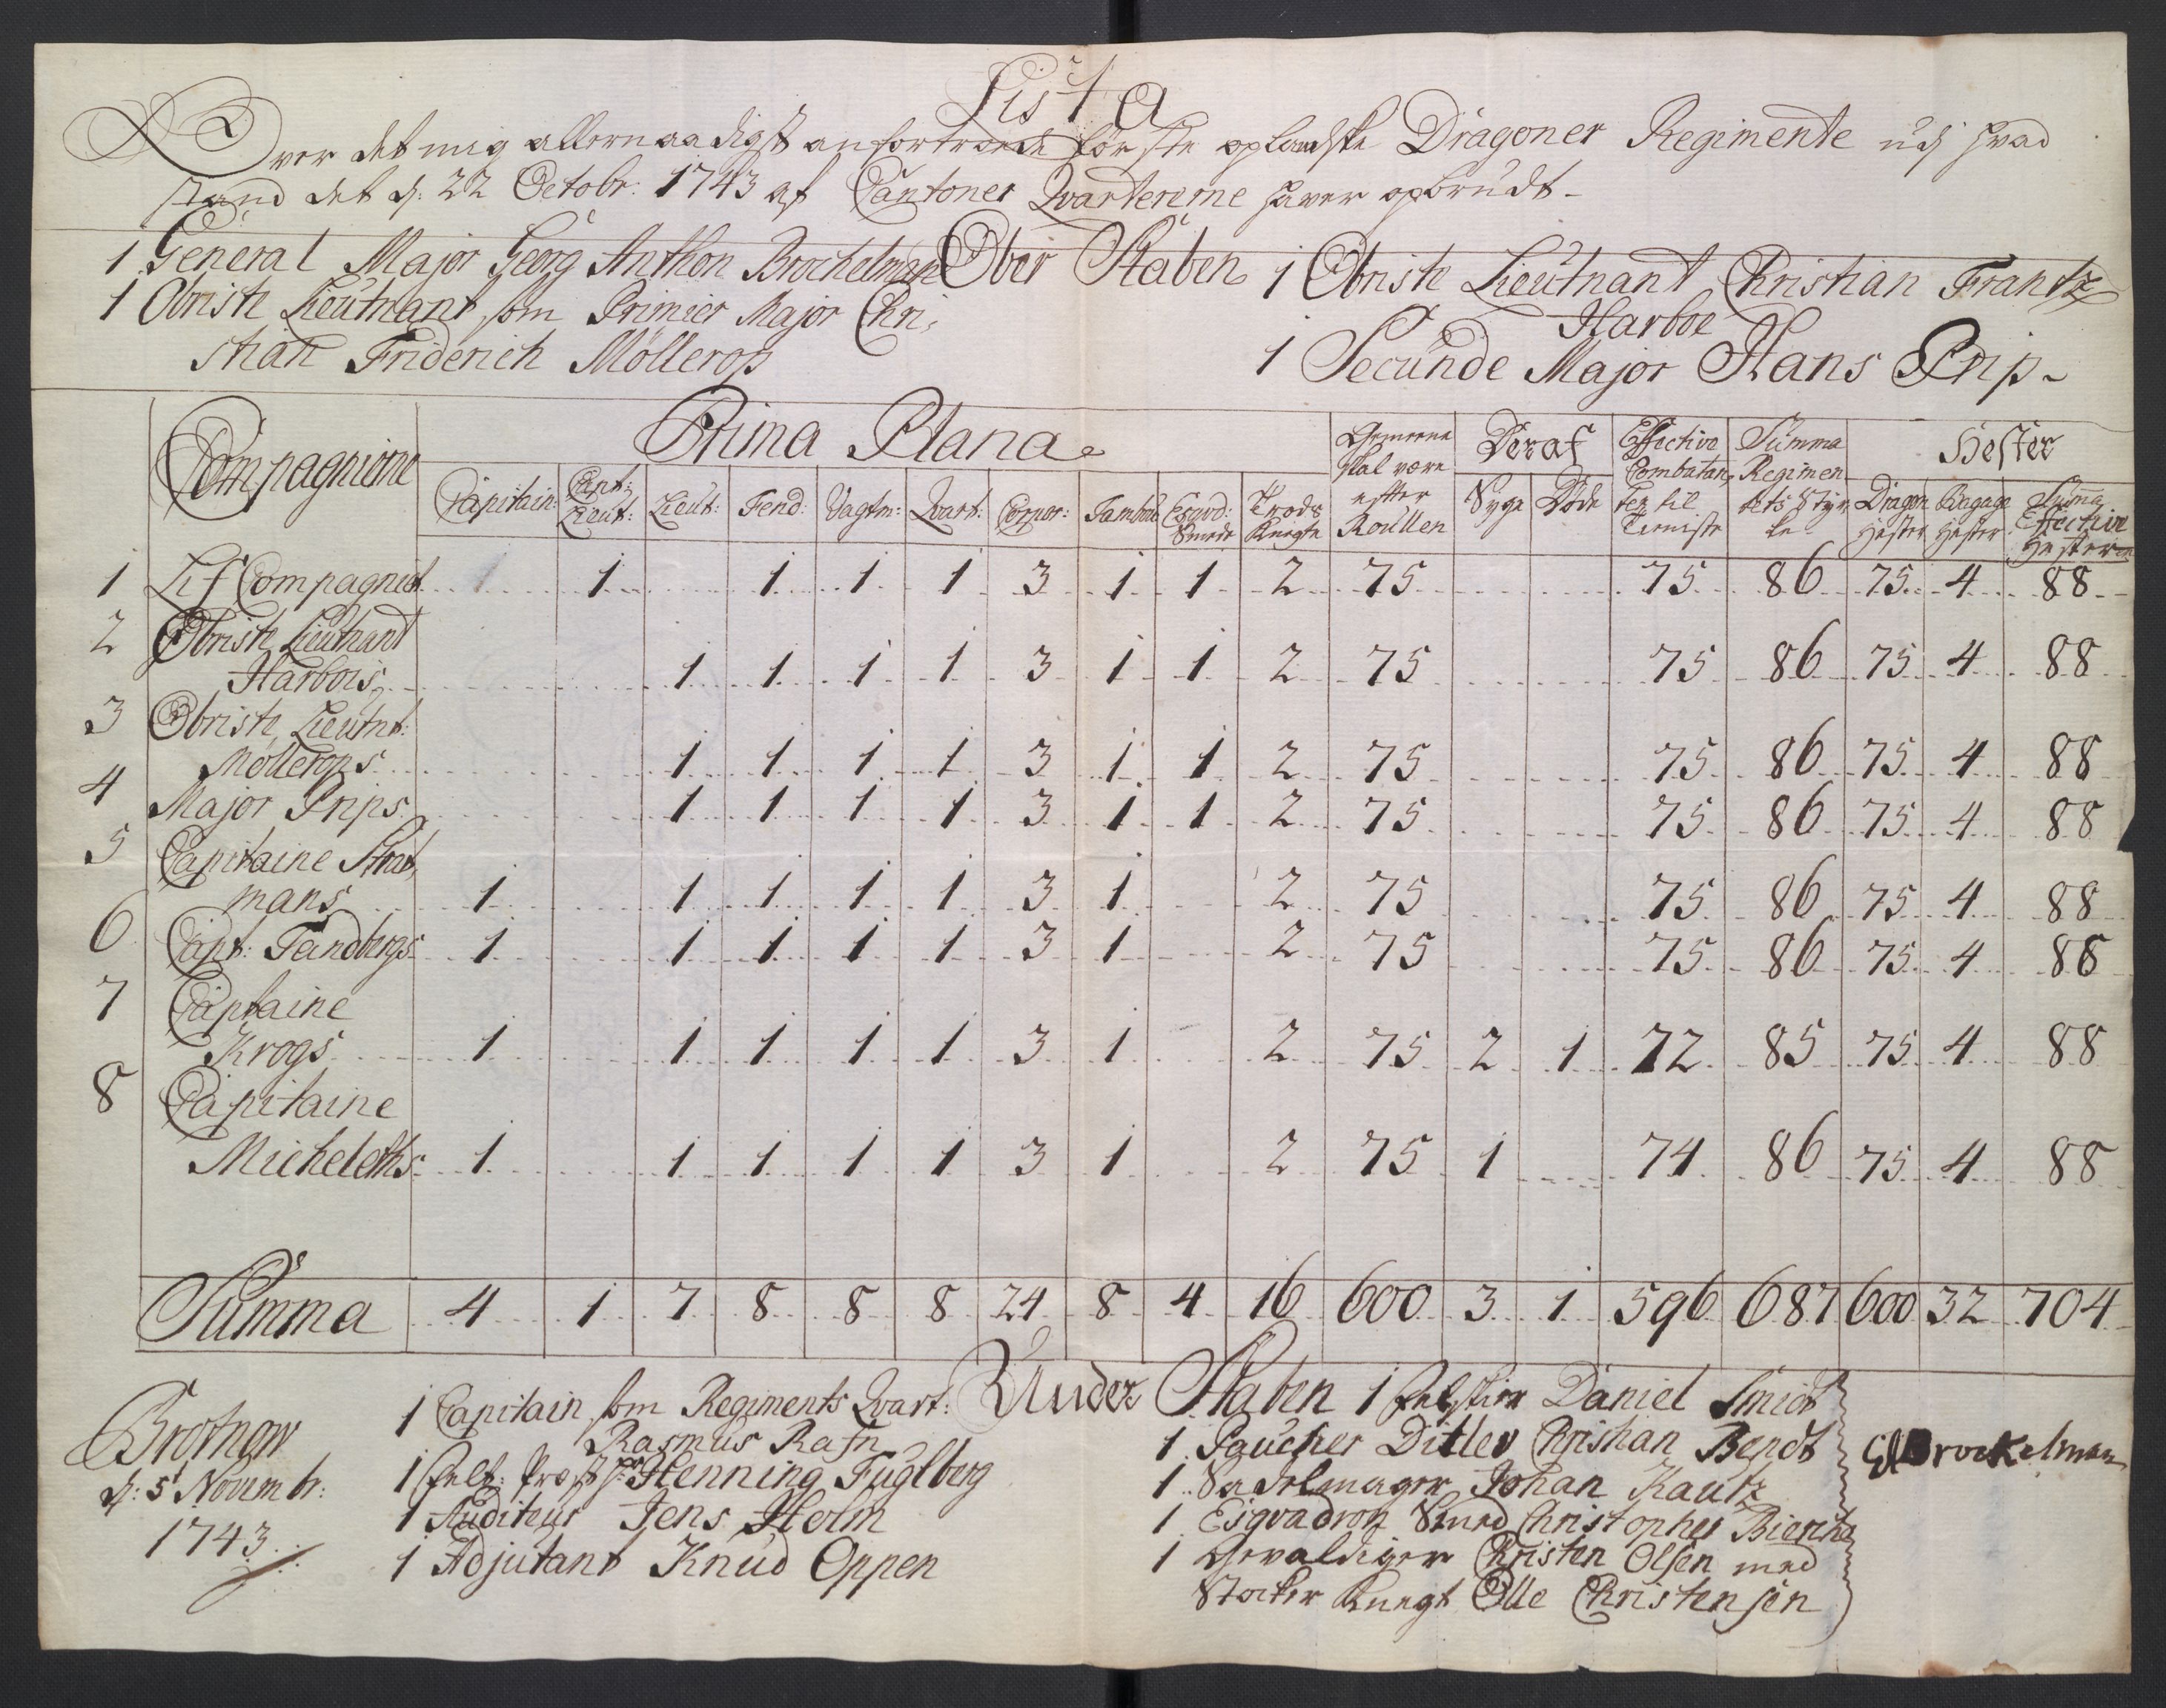 Lista
Over det mig allernaadigst anfortroede første oplandske Dragoner Regimente udj hvad
stand det d: 22 Octobr: 1743 af Cantoner Qvarterene haver opbrudt-
Ober Staben
1 General Major Georg Anthon Brochelman
1 Obriste Lieutnant som Primier Major Chri,
stian Friderich Möllerop
1 Obriste Lieutnant Christian Frantz
Harboe
1 Secunde Major Hans Prip-
Compagnierne Prima Plana Gemeene skal være efter Roullen Deraf Effective Combatan, ter til Tieniste Summa Regimen tets Styr ke Hester
Capitain: Capt: Lieut: Lieut: Fend: Vagtm: Qvart: Corpor: Tambur Esqvd: Smede Trods Knegte Syge Døde Dragon Hester Bagage Hester Summa Effective Hesterne
1 Lif Compagniet 1 1 1 1 1 3 1 1 2 75 75 86 75 4 88
2 Obriste Lieutnant
Harbois 1 1 1 1 3 1 1 2 75 75 86 75 4 88
3 Obriste Lieutnt:
Möllerops 1 1 1 1 3 1 1 2 75 75 86 75 4 88
4 Major Prips 1 1 1 1 3 1 1 2 75 75 86 75 4 88
5 Capitaine
mans 1 1 1 1 1 3 1 2 75 75 86 75 4 88
6 Capt: Tandbergs 1 1 1 1 1 3 1 2 75 75 86 75 4 88
7 Captaine
Krogs 1 1 1 1 1 3 1 2 75 2 1 72 85 75 4 88
8 Capitaine
Micheleths 1 1 1 1 1 3 1 2 75 1 74 86 75 4 88
Summa 4 1 7 8 8 8 24 8 4 16 600 3 1 596 687 600 32 704
Under Staben
1 Capitain som Regiments Qvart:
Rasmus Rafn
1 Felt: Præst Hr Henning Fuglberg
1 Auditeur Jens Holm
1 Adjutant Knud Oppen
1 Feltskier Daniel Smidt
1 Paucher Ditlev Christian Bendt
1 Sadelmager Johan Kautz
1 Esqvadron Smed Christopher
1 Gevaldiger Christen Olsen med
Stocker Knegt Olle Christensen
Brotnow
d: 5t Novembr:
1743
Brockelman